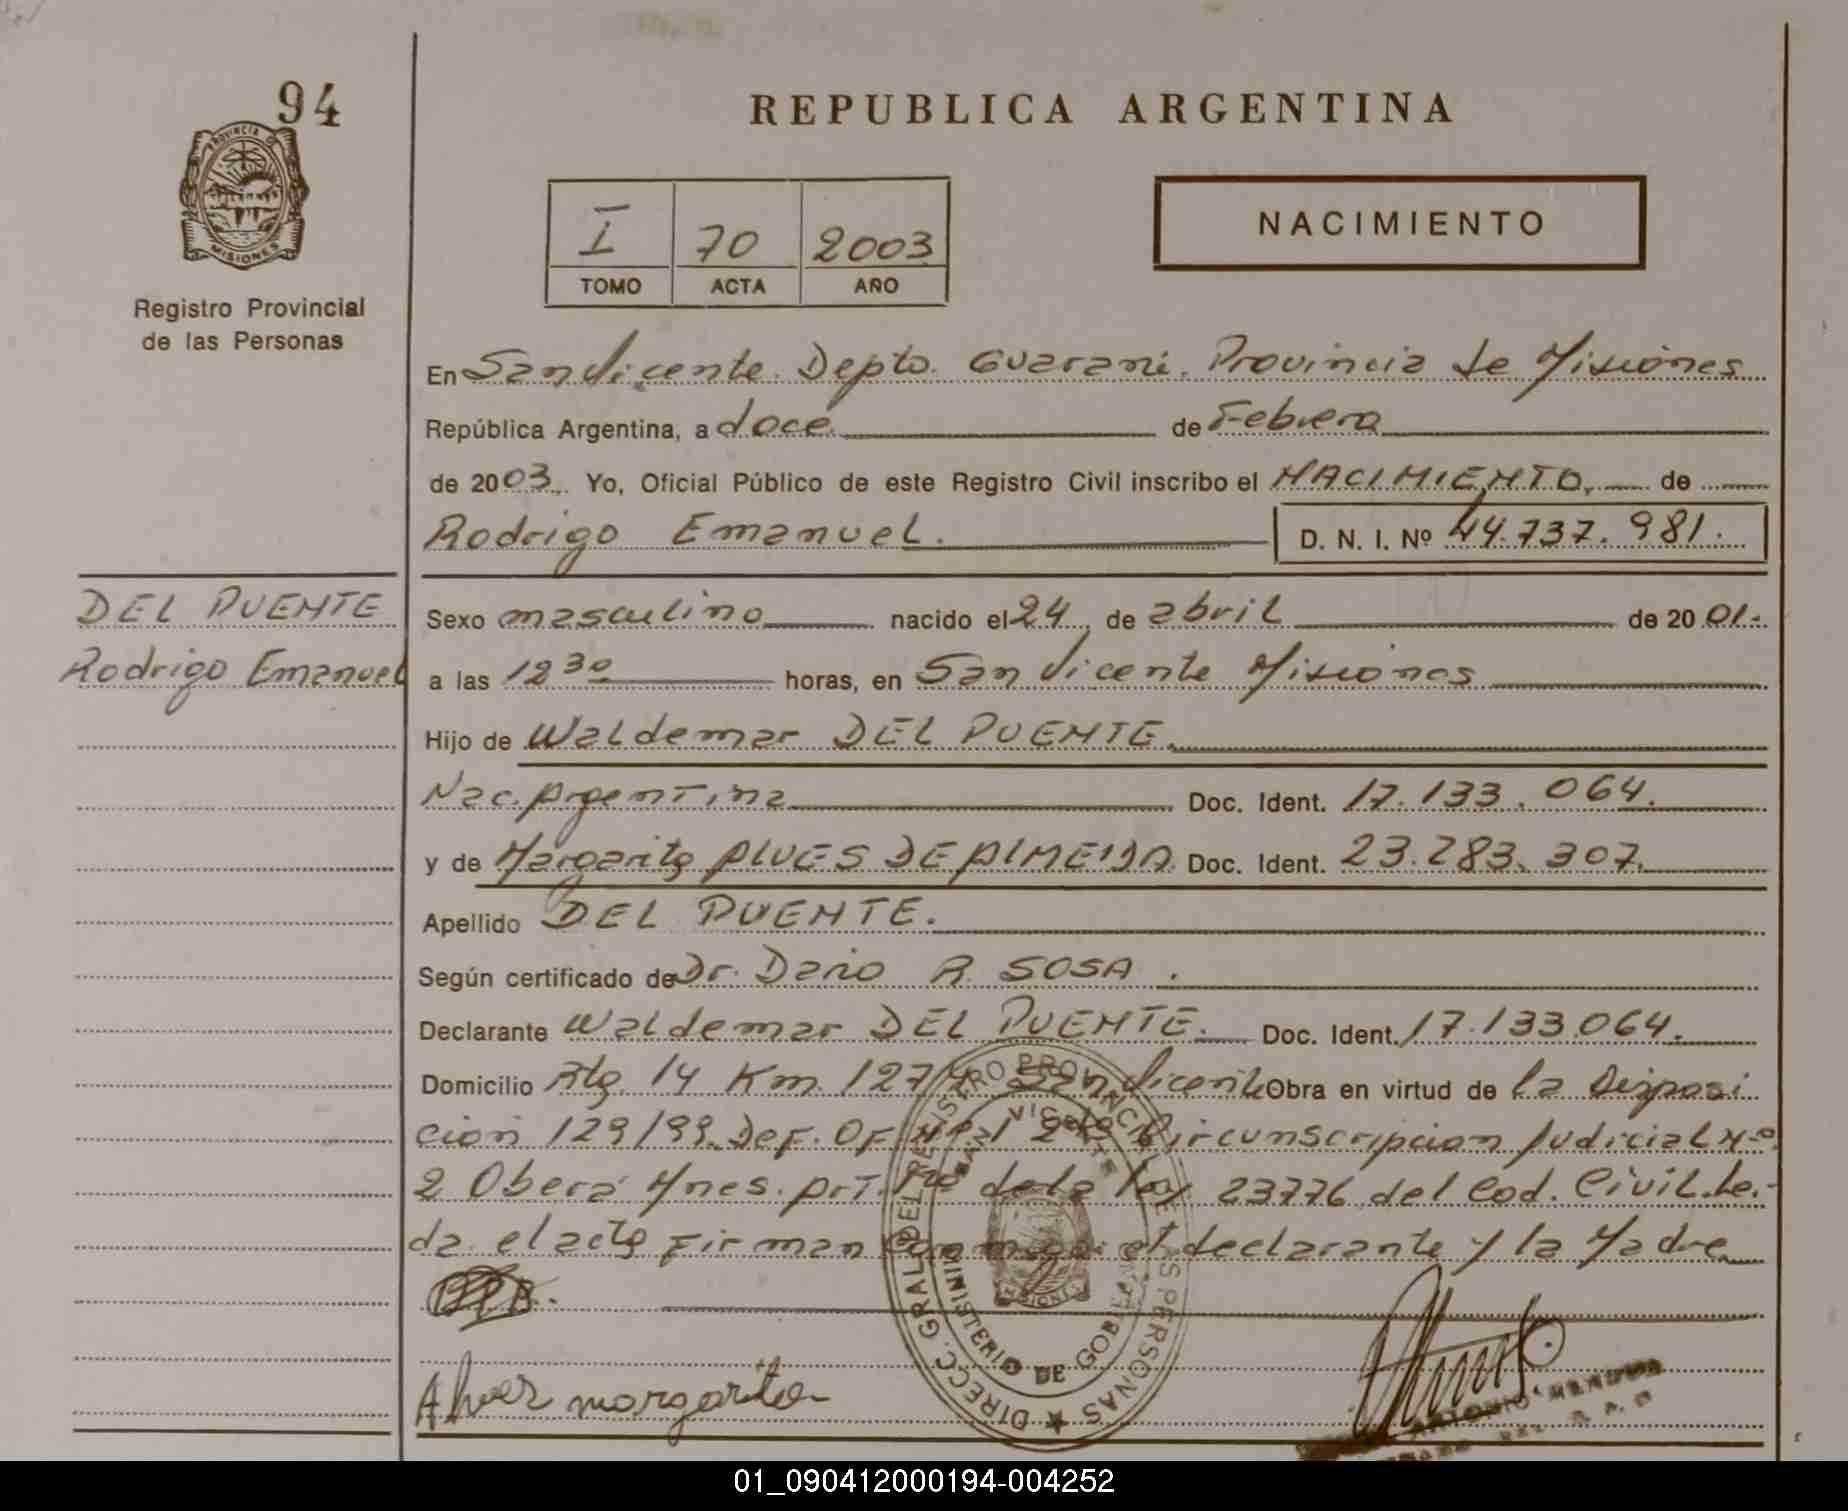 94
PROVINCIA DE
MISIONES
Registro Provincial
de las Personas
REPUBLICA ARGENTINA
I 70 2003
TOMO ACTA AÑO
NACIMIENTO
En San Vicente. Depto. Guaraní. Provincia de Misiones
República Argentina, a doce de Febrero
de 2003. Yo, Oficial Público de este Registro Civil inscribo el NACIMIENTO, de
Rodrigo Emanuel. D. N. I. Nº 44.737.981.
DEL PUENTE
Rodrigo Emanuel
Sexo masculino nacido el 24 de abril de 2001.
a las 12 30 horas, en San Vicente Misiones
Hijo de Waldemar DEL PUENTE.
Nac. Argentina Doc. Ident. 17.133.064.
y de Margarita ALVES DE ALMEIDA. Doc. Ident. 23.283.307.
Apellido DEL PUENTE.
Según certificado de Dr. Dario R. SOSA.
Declarante Waldemar DEL PUENTE. Doc. Ident. 17.133.064.
Domicilio Rta. 14 Km. 1274 San Vicente Obra en virtud de la Disposi
cion 129/99. Def. Of. Nº 1 2da Circunscripcion Judicial Nº
2 Obera Mnes. Art. de la Ley 23776 del Cod. Civil. Le.-
da el acta Firman con migo el declarante y la Madre
Alves margarita
DIRECC. GRAL. DEL REGISTRO PROVINCIAL DE LAS PERSONAS
SAN VICENTE
MINISTERIO DE GOBIERNO
MISIONES
ANTONIO
01_090412000194-004252